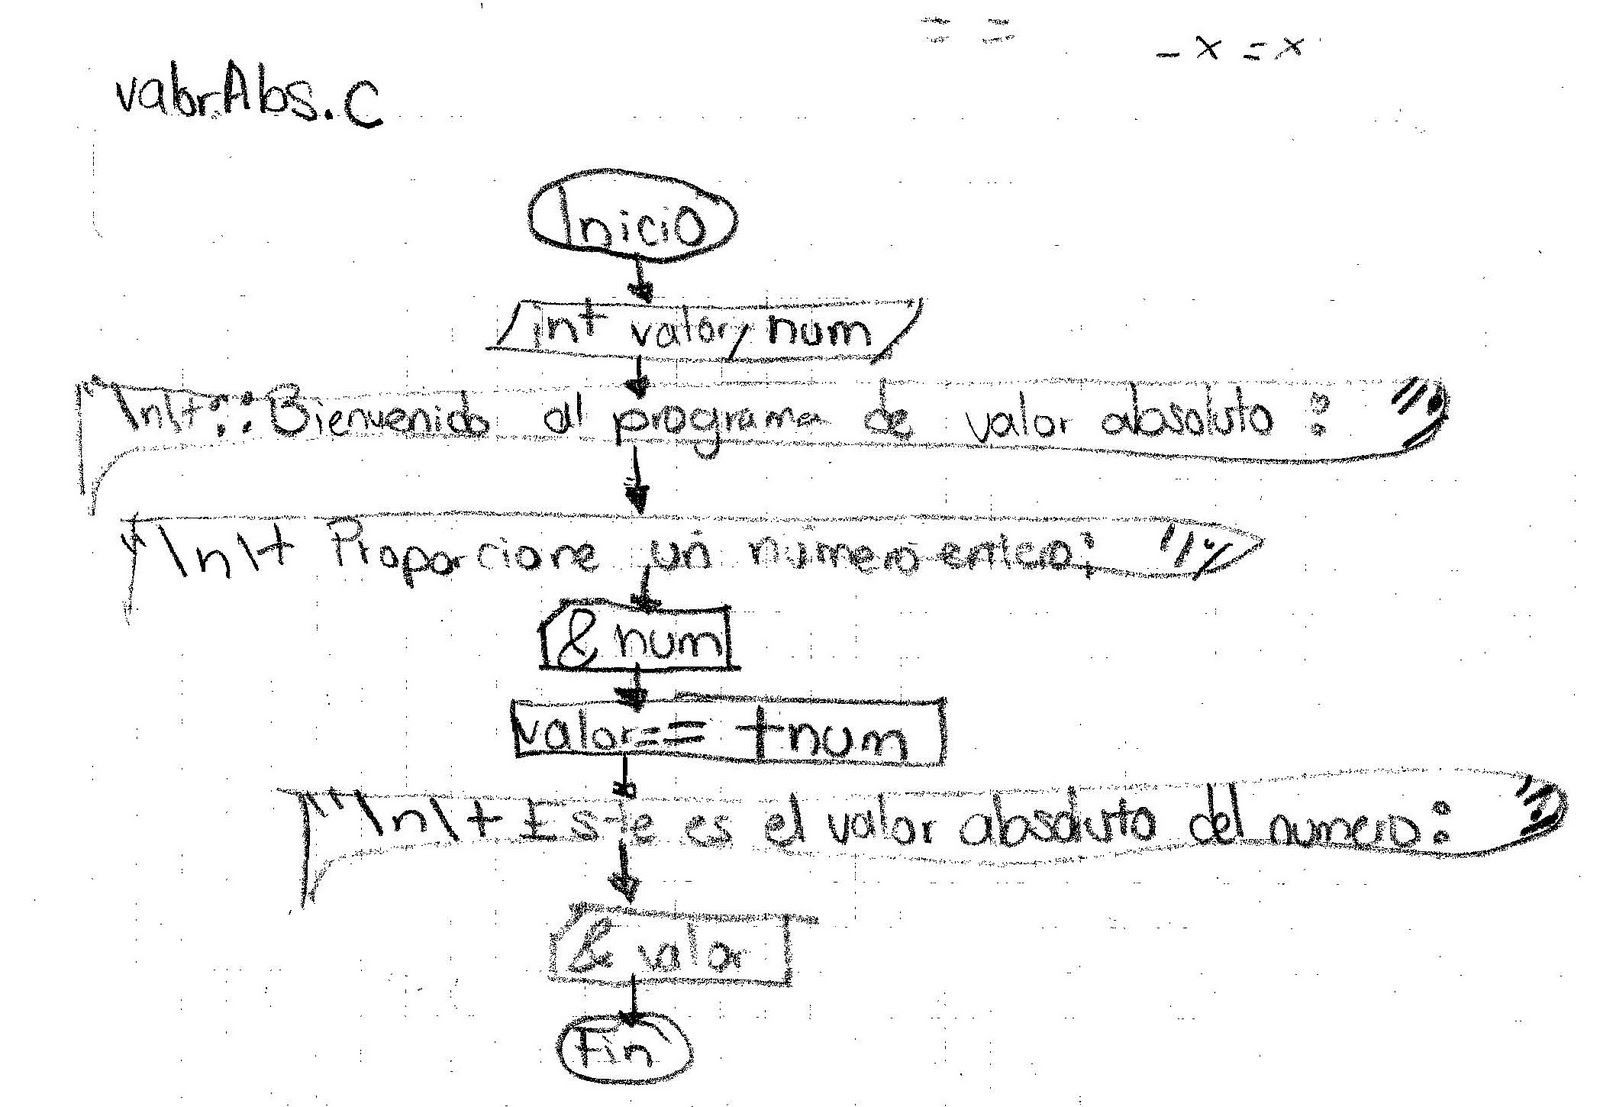 = =
- x = x
valorAbs.C
Inicio
int valor, num
"\n\t::Bienvenido al programa de valor absoluto : "
"\n\t Proporcione un número entero: "
& num
valor == +num
"\n\t Este es el valor absoluto del numero: "
& valor
Fin